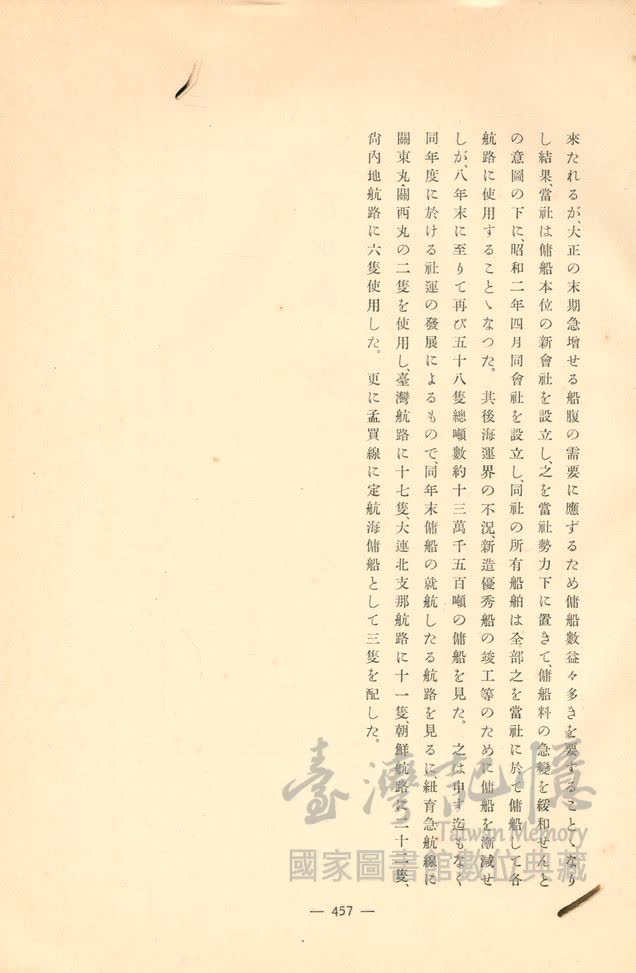 來たれるが、大正の末期急增せる船腹の需要に應ずるため傭船數益々多きを要することゝなり
し結果、當社は傭船本位の新會社を設立し、之を當社勢力下に置きて、傭船料の急變を緩和せんと
の意圖の下に、昭和二年四月同會社を設立し、同社の所有船舶は全部之を當社に於て傭船して各
航路に使用することゝなつた。其後海運界の不況、新造優秀船の竣工等のために傭船を漸減せ
しが、八年末に至りて再び五十八隻總噸數約十三萬千五百噸の傭船を見た。之は申す迄もなく
同年度に於ける社運の發展によるもので、同年末傭船の就航したる航路を見るに、紐育急航線に
關東丸・關西丸の二隻を使用し、臺灣航路に十七隻、大連北支那航路に十一隻、朝鮮航路に二十二隻、
尙內地航路に六隻使用した。更に孟買線に定航海傭船として三隻を配した。
臺灣記憶
Taiwan Memory
國家圖書館數位典藏
— 457 —